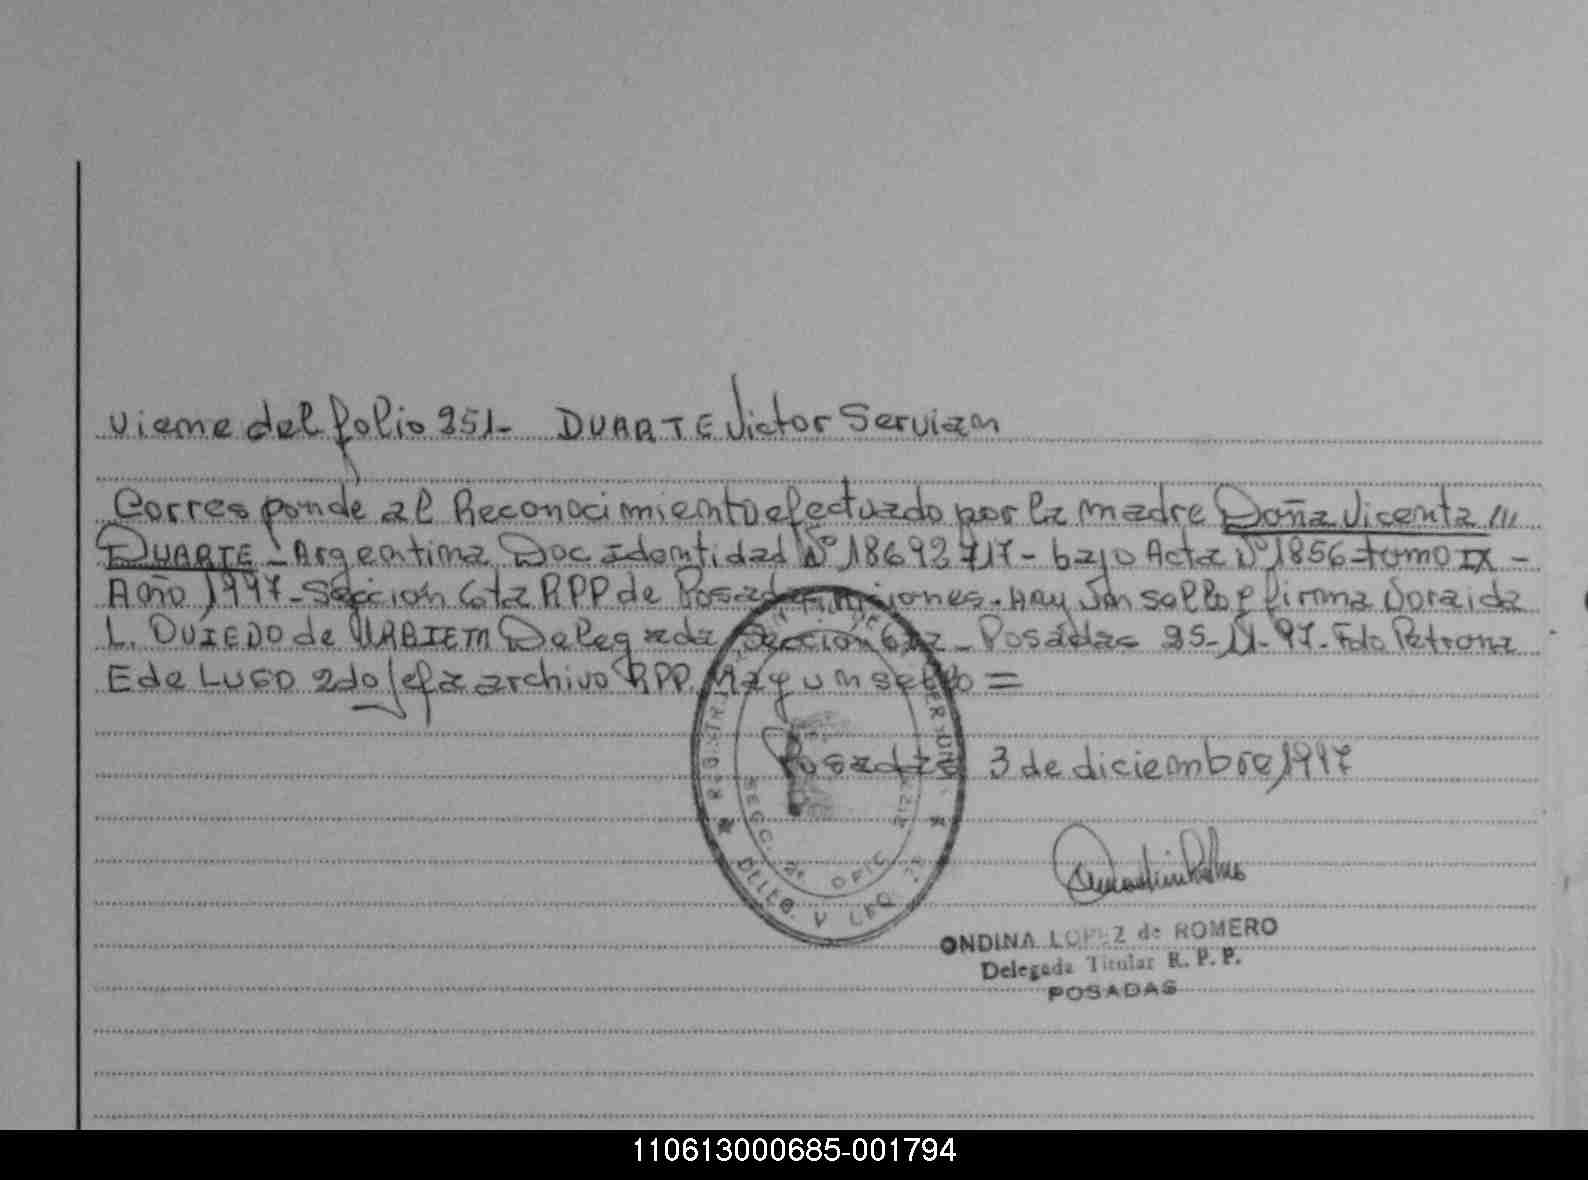 Viene del folio 251- DUARTE Victor Servian
Corresponde al Reconocimiento efectuado por la madre Doña Vicenta
DUARTE - Argentina Doc Identidad Nº 18692717 - bajo Acta Nº 1856 - tomo IX -
Año 1997 - Seccion 6ta RPP de Posadas Misiones. Hay Un sello y firma Soraida
L. OVIEDO de Delegada Seccion 6ta - Posadas 25-11-97. Fdo Petrona
E de LUGO 2do Jefa archivo RPP. Hay un sello =
Posadas 3 de diciembre 1997
REGISTR
SECC. 2ª OFIC
DELEG. V
ONDINA LOPEZ de ROMERO
Delegada Titular R. P. P.
POSADAS
110613000685-001794